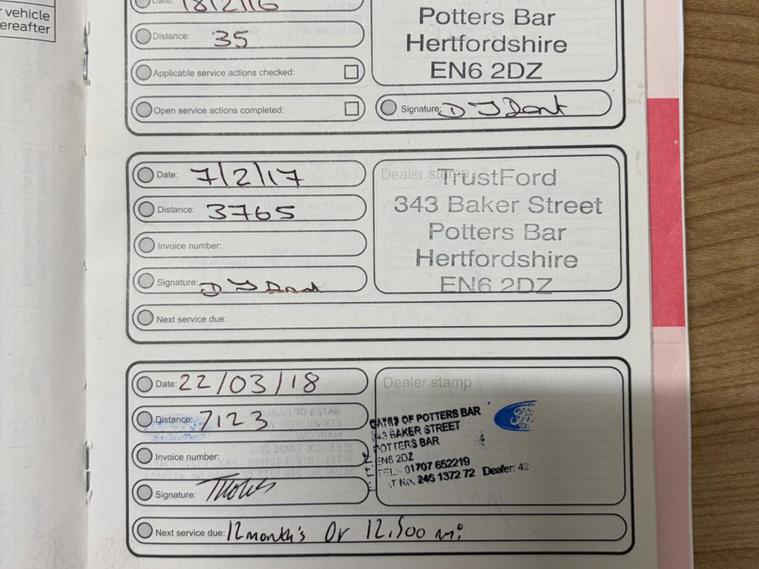 r vehicle
ereafter
Date: 18/2/16
Distance: 35
Applicable service actions checked:
Open service actions completed:
Potters Bar
Hertfordshire
EN6 2DZ
Signature: D J Dont
Date: 7/2/17
Distance: 3765
Invoice number:
Signature:
Next service due:
Dealer stamp
TrustFord
343 Baker Street
Potters Bar
Hertfordshire
EN6 2DZ
Date: 22/03/18
Distance: 7123
Invoice number:
Signature:
Next service due: 12 month's Or 12,500 mi
Dealer stamp
GATES OF POTTERS BAR
343 BAKER STREET
POTTERS BAR
EN6 2DZ
TEL:- 01707 652219
T No. 245 1372 72 Dealer: 42